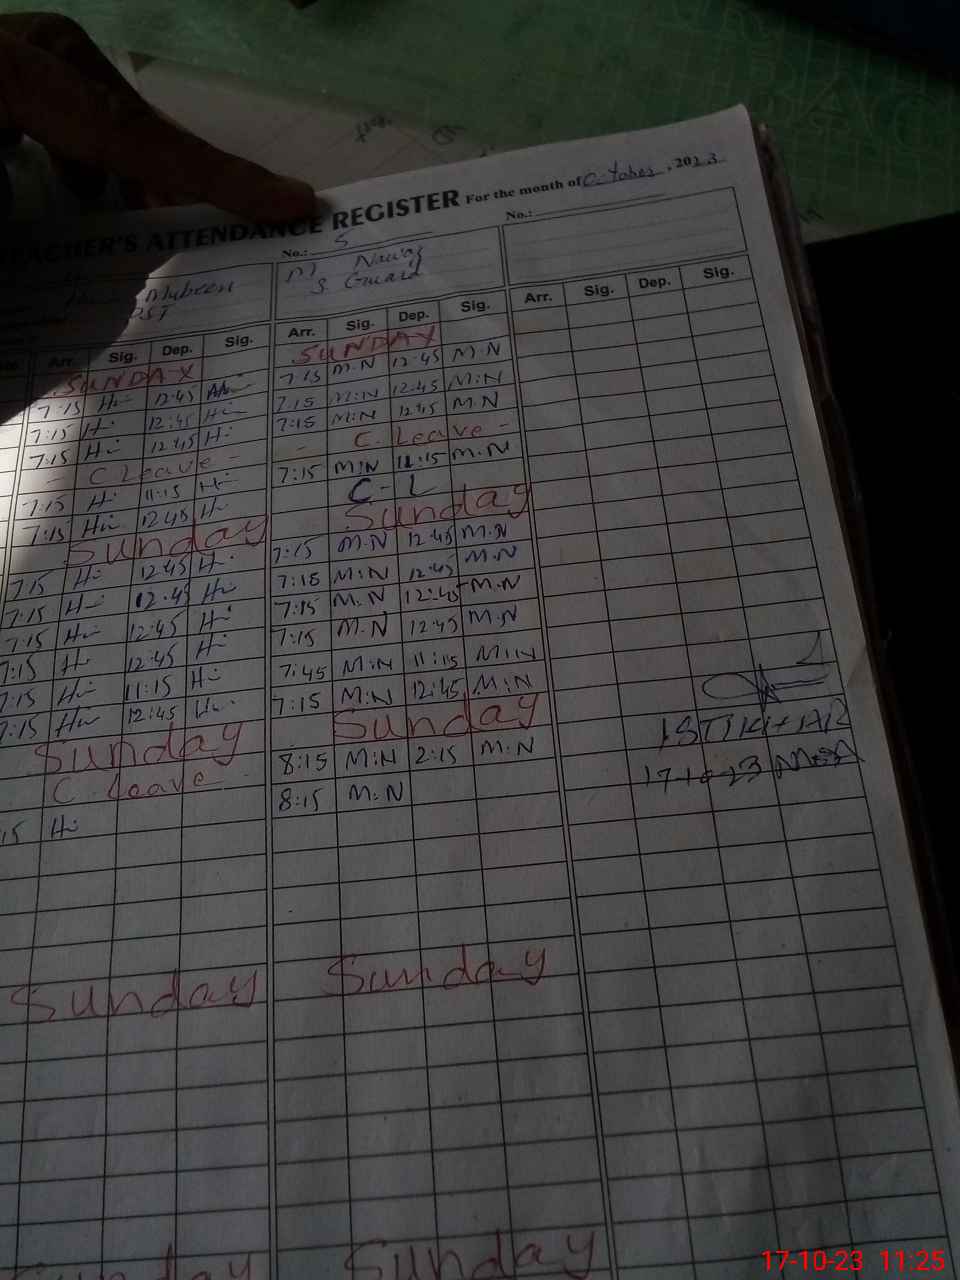 TEACHER'S ATTENDANCE REGISTER For the month of October, 2023
No.: 5 No.:
Mubeen M. Nawaz
PST S. Guard
Arr. Sig. Dep. Sig. Arr. Sig. Dep. Sig. Arr. Sig. Dep. Sig.
SUNDAY SUNDAY
7:15 Hi 12:45 7:15 M.N 12:45 M.N
7:15 Hi 12:45 Hi 7:15 M:N 12:45 M:N
7:15 Hi 12:45 Hi 7:15 M:N 12:45 M.N
- C Leave - - C. Leave -
7:15 Hi 11:15 Hi 7:15 M:N 11:15 M.N
7:15 Hi 12:45 Hi C - L
Sunday Sunday
7:15 Hi 12:45 Hi 7:15 M.N 12:45 M.N
7:15 Hi 12:45 Hi 7:15 M:N 12:45 M.N
7:15 Hi 12:45 Hi 7:15 M.N 12:45 M.N
7:15 Hi 12:45 Hi 7:15 M.N 12:45 M.N
7:15 Hi 11:15 Hi 7:45 M:N 11:15 M:N
7:15 Hi 12:45 Hi 7:15 M:N 12:45 M:N
Sunday Sunday
C. Leave 8:15 M:N 2:15 M:N
15 Hi 8:15 M:N
ISTIKHAR
17-10-23
Sunday Sunday
Sunday Sunday
17-10-23 11:25